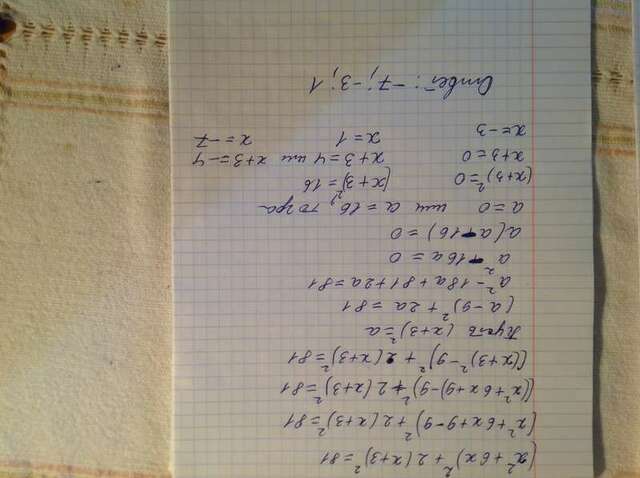 (x²+6x)²+2(x+3)²=81
(x²+6x+9-9)²+2(x+3)²=81
((x²+6x+9)-9)²+2(x+3)²=81
((x+3)²-9)²+2(x+3)²=81
Пусть (x+3)²=a
(a-9)²+2a=81
a²-18a+81+2a=81
a²-16a=0
a(a-16)=0
a=0 или a=16, тогда
(x+3)²=0 (x+3)²=16
x+3=0 x+3=4 или x+3=-4
x=-3 x=1 x=-7
Ответ: -7; -3; 1